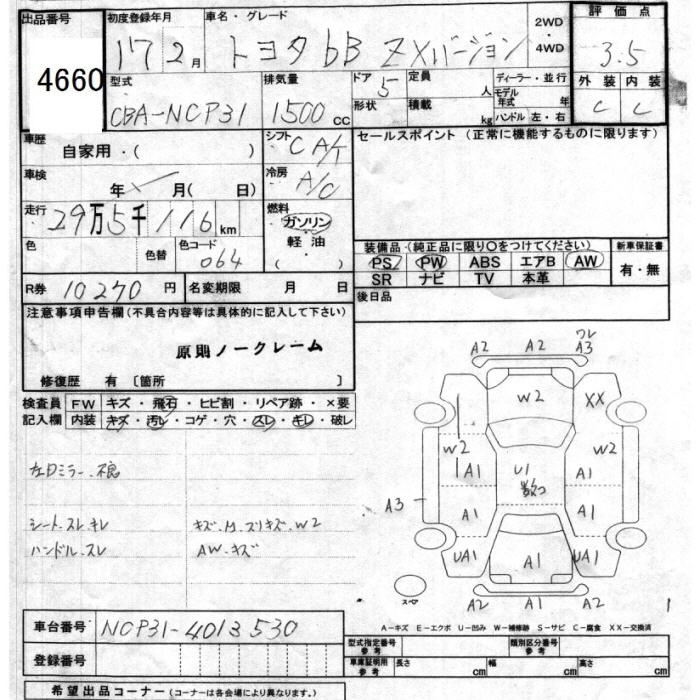 出品番号 初度登録年月 車名・グレード 2WD・4WD 評価点
4660 17 2月 トヨタ bB ZXバージョン 3.5
型式 排気量 ドア 5 定員 人 ディーラー・並行 外装 内装
CBA-NCP31 1500cc 形状 積載 kg モデル年式 年 C C
ハンドル 左・右
車歴 自家用・( ) シフト CAT セールスポイント (正常に機能するものに限ります)
車検 年 月( 日) 冷房 A/C
走行 29万5千116km 燃料 ガソリン
軽油
( )
色 色替 色コード 064
装備品・(純正品に限り○をつけてください) 新車保証書
PS PW ABS エアB AW 有・無
SR ナビ TV 本革
R券 10270円 名変期限 月 日 後日品
注意事項申告欄(不具合内容等は具体的に記入して下さい)
原則ノークレーム
修復歴 有 〔箇所 〕
検査員 FW キズ・飛石・ヒビ割・リペア跡・×要
記入欄 内装 キズ・汚レ・コゲ・穴・スレ・キレ・破レ
左ドミラー、不良
シート.スレ.キレ キズ.凹.スリキズ.W2
ハンドル.スレ AW.キズ
A2 A2 ワレ A3
W2 XX
W2 W2
A1 U1 数つ A1
A3 A1 A1
UA1 A1 UA1
スペア A2 A2 A1
A-キズ E-エクボ U-凹み W-補修跡 S-サビ C-腐食 XX-交換済
車台番号 NCP31-4013530
登録番号
型式指定番号 参考 類別区分番号 参考
車庫証明用 参考 長さ cm 幅 cm 高さ cm
希望出品コーナー (コーナーは各会場により異なります。)